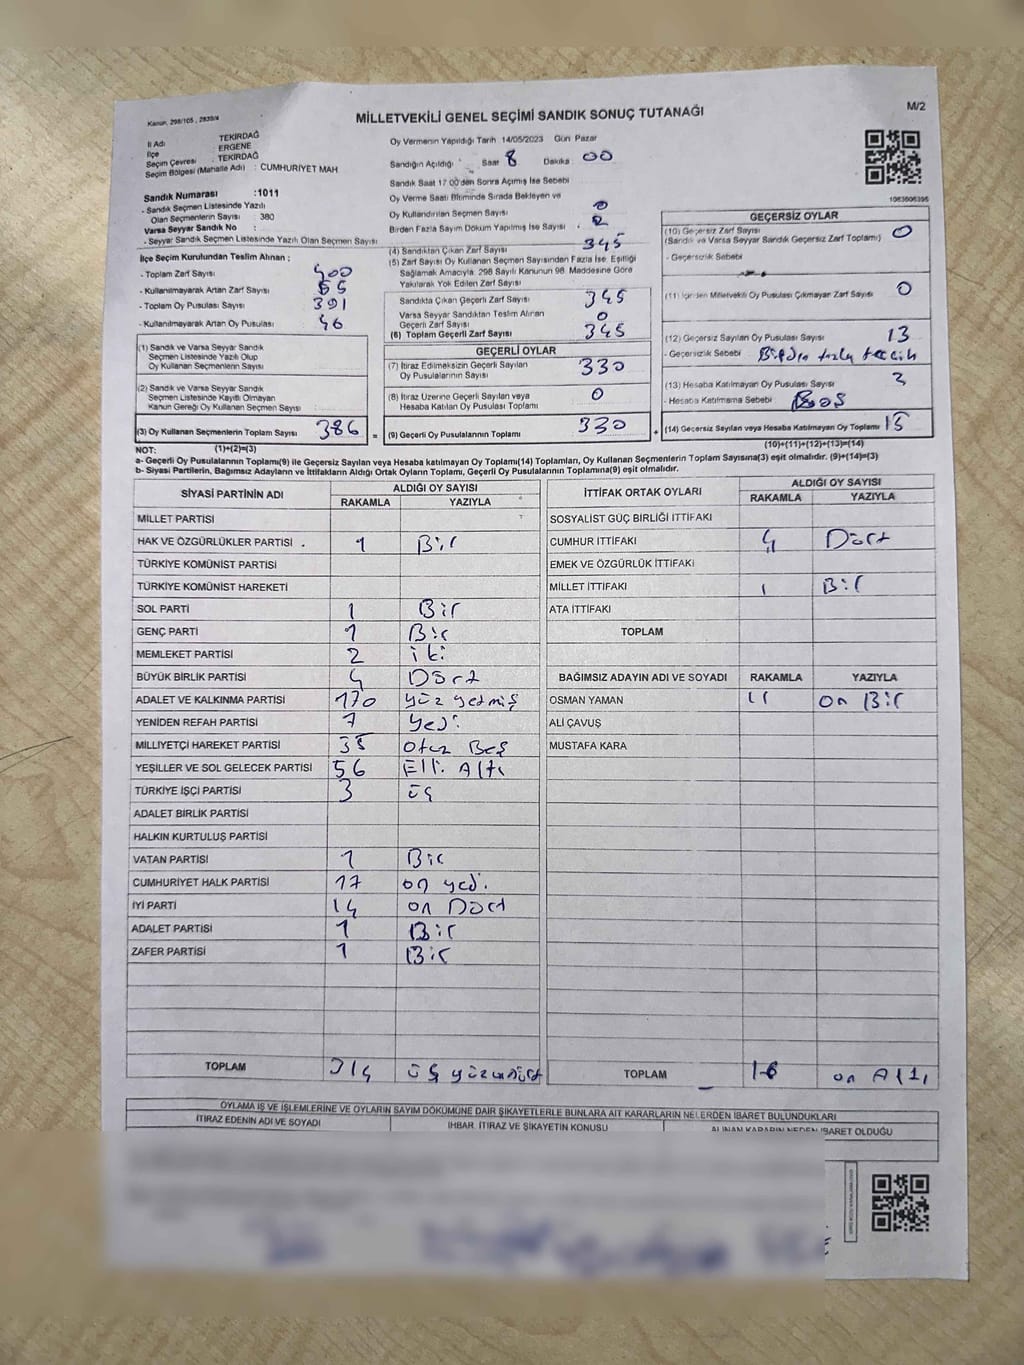 Kanun, 298/105 , 2839/4
MİLLETVEKİLİ GENEL SEÇİMİ SANDIK SONUÇ TUTANAĞI
M/2
İl Adı : TEKİRDAĞ
İlçe : ERGENE
Seçim Çevresi : TEKİRDAĞ
Seçim Bölgesi (Mahalle Adı) : CUMHURİYET MAH
Sandık Numarası :1011
- Sandık Seçmen Listesinde Yazılı
Olan Seçmenlerin Sayısı : 380
Varsa Seyyar Sandık No :
- Seyyar Sandık Seçmen Listesinde Yazılı Olan Seçmen Sayısı
İlçe Seçim Kurulundan Teslim Alınan ;
- Toplam Zarf Sayısı 400
- Kullanılmayarak Artan Zarf Sayısı 55
- Toplam Oy Pusulası Sayısı 391
- Kullanılmayarak Artan Oy Pusulası 46
(1) Sandık ve Varsa Seyyar Sandık
Seçmen Listesinde Yazılı Olup
Oy Kullanan Seçmenlerin Sayısı
(2) Sandık ve Varsa Seyyar Sandık
Seçmen Listesinde Kayıtlı Olmayan
Kanun Gereği Oy Kullanan Seçmen Sayısı :
(3) Oy Kullanan Seçmenlerin Toplam Sayısı 386
Oy Vermenin Yapıldığı Tarih 14/05/2023 Gün Pazar
Sandığın Açıldığı Saat 8 Dakika 00
Sandık Saat 17.00'den Sonra Açılmış İse Sebebi
Oy Verme Saati Bitiminde Sırada Bekleyen ve
Oy Kullandırılan Seçmen Sayısı 0
Birden Fazla Sayım Döküm Yapılmış İse Sayısı 2
(4) Sandıktan Çıkan Zarf Sayısı 345
(5) Zarf Sayısı Oy Kullanan Seçmen Sayısından Fazla İse, Eşitliği
Sağlamak Amacıyla, 298 Sayılı Kanunun 98. Maddesine Göre
Yakılarak Yok Edilen Zarf Sayısı
Sandıkta Çıkan Geçerli Zarf Sayısı 345
Varsa Seyyar Sandıktan Teslim Alınan
Geçerli Zarf Sayısı 0
(6) Toplam Geçerli Zarf Sayısı 345
GEÇERLİ OYLAR
(7) İtiraz Edilmeksizin Geçerli Sayılan
Oy Pusulalarının Sayısı 330
(8) İtiraz Üzerine Geçerli Sayılan veya
Hesaba Katılan Oy Pusulası Toplamı 0
= (9) Geçerli Oy Pusulalarının Toplamı 330 +
1063606395
GEÇERSİZ OYLAR
(10) Geçersiz Zarf Sayısı 0
(Sandık ve Varsa Seyyar Sandık Geçersiz Zarf Toplamı)
- Geçersizlik Sebebi
(11) İçinden Milletvekili Oy Pusulası Çıkmayan Zarf Sayısı 0
(12) Geçersiz Sayılan Oy Pusulası Sayısı 13
- Geçersizlik Sebebi Birden fazla tercih
(13) Hesaba Katılmayan Oy Pusulası Sayısı
- Hesaba Katılmama Sebebi Boş
(14) Geçersiz Sayılan veya Hesaba Katılmayan Oy Toplamı 15
NOT: (1)+(2)=(3) (10)+(11)+(12)+(13)=(14)
a- Geçerli Oy Pusulalarının Toplamı(9) ile Geçersiz Sayılan veya Hesaba katılmayan Oy Toplamı(14) Toplamları, Oy Kullanan Seçmenlerin Toplam Sayısına(3) eşit olmalıdır. (9)+(14)=(3)
b- Siyasi Partilerin, Bağımsız Adayların ve İttifakların Aldığı Ortak Oyların Toplamı, Geçerli Oy Pusulalarının Toplamına(9) eşit olmalıdır.
SİYASİ PARTİNİN ADI ALDIĞI OY SAYISI
RAKAMLA YAZIYLA
MİLLET PARTİSİ
HAK VE ÖZGÜRLÜKLER PARTİSİ 1 Bir
TÜRKİYE KOMÜNİST PARTİSİ
TÜRKİYE KOMÜNİST HAREKETİ
SOL PARTİ 1 Bir
GENÇ PARTİ 1 Bir
MEMLEKET PARTİSİ 2 iki
BÜYÜK BİRLİK PARTİSİ 4 Dört
ADALET VE KALKINMA PARTİSİ 170 yüz yetmiş
YENİDEN REFAH PARTİSİ 7 yedi
MİLLİYETÇİ HAREKET PARTİSİ 35 otuz Beş
YEŞİLLER VE SOL GELECEK PARTİSİ 56 Elli Altı
TÜRKİYE İŞÇİ PARTİSİ 3 üç
ADALET BİRLİK PARTİSİ
HALKIN KURTULUŞ PARTİSİ
VATAN PARTİSİ 1 Bir
CUMHURİYET HALK PARTİSİ 17 on yedi
İYİ PARTİ 14 on Dört
ADALET PARTİSİ 1 Bir
ZAFER PARTİSİ 1 Bir
TOPLAM 314 üç yüzondört
İTTİFAK ORTAK OYLARI ALDIĞI OY SAYISI
RAKAMLA YAZIYLA
SOSYALİST GÜÇ BİRLİĞİ İTTİFAKI
CUMHUR İTTİFAKI 4 Dört
EMEK VE ÖZGÜRLÜK İTTİFAKI
MİLLET İTTİFAKI 1 Bir
ATA İTTİFAKI
TOPLAM
BAĞIMSIZ ADAYIN ADI VE SOYADI RAKAMLA YAZIYLA
OSMAN YAMAN 11 on Bir
ALİ ÇAVUŞ
MUSTAFA KARA
TOPLAM 16 on Altı
OYLAMA İŞ VE İŞLEMLERİNE VE OYLARIN SAYIM DÖKÜMÜNE DAİR ŞİKAYETLERLE BUNLARA AİT KARARLARIN NELERDEN İBARET BULUNDUKLARI
İTİRAZ EDENİN ADI VE SOYADI İHBAR, İTİRAZ VE ŞİKAYETİN KONUSU ALINAN KARARIN NEDEN İBARET OLDUĞU